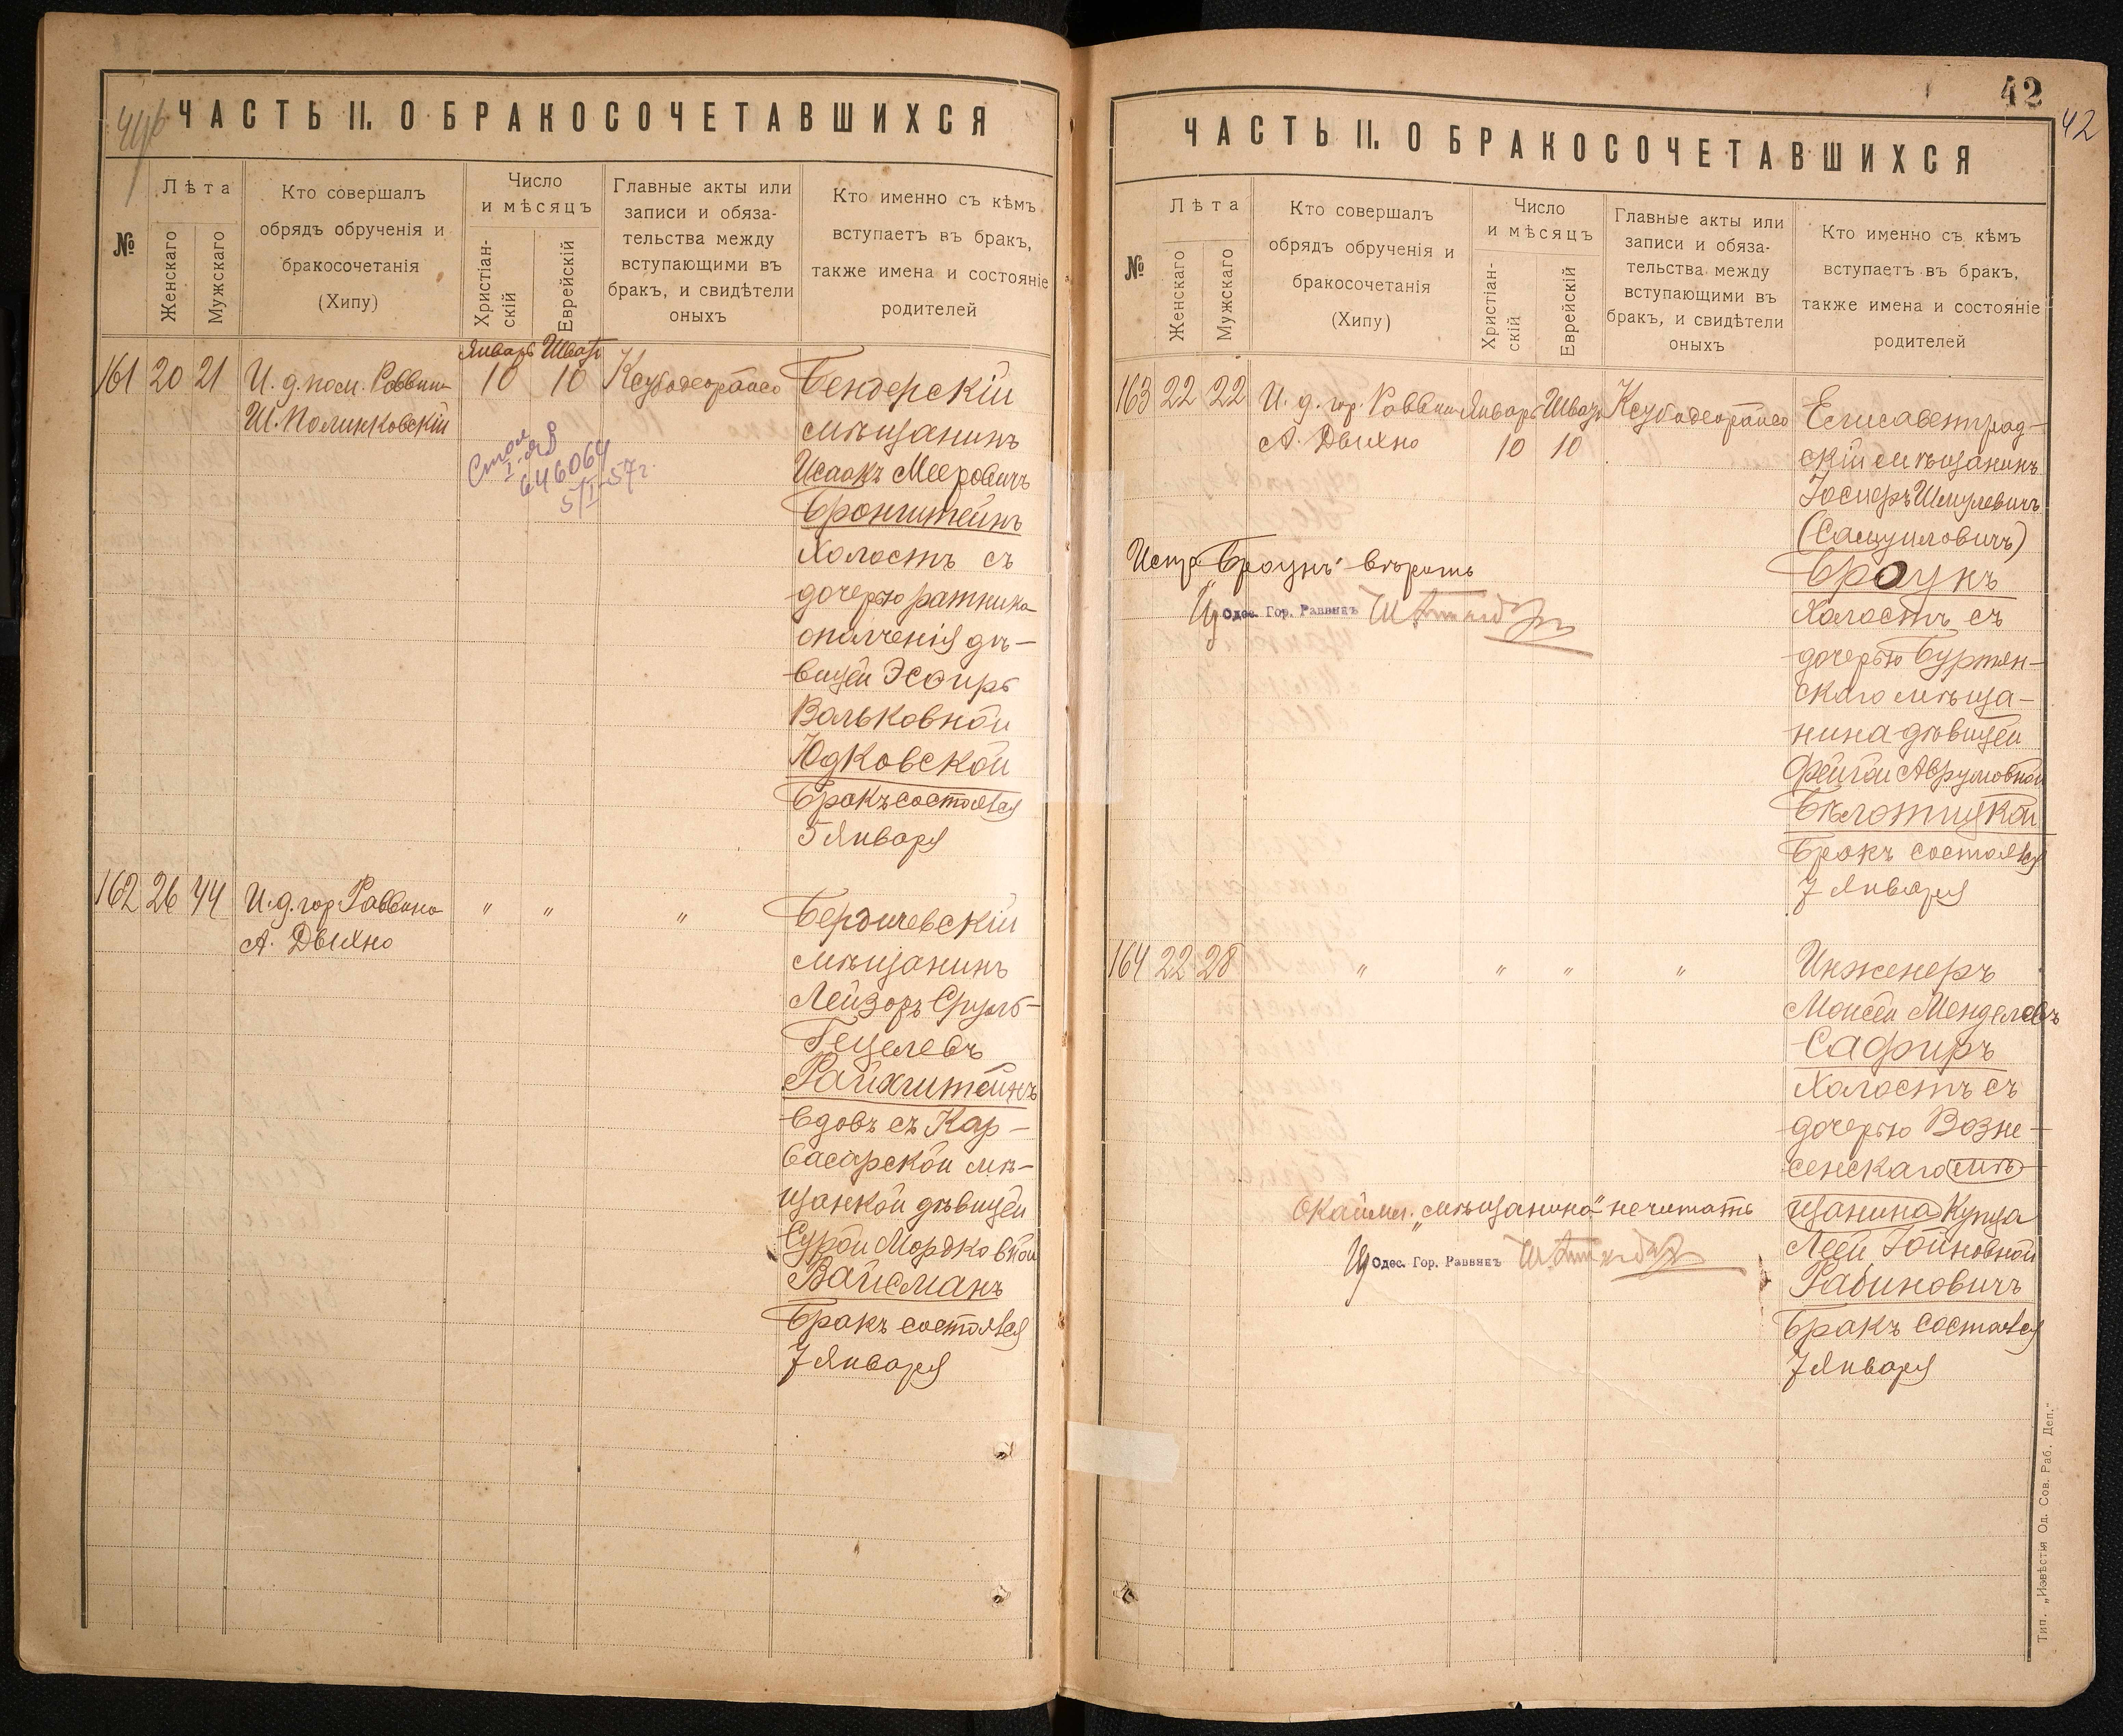 ЧАСТЬ II. О БРАКОСОЧЕТАВШИХСЯ
№
Лѣта
Женскаго
Мужскаго
Кто совершалъ
обрядъ обрученія и
бракосочетанія
(Хипу)
Число
и мѣсяцъ
Христіан-
скій
Еврейскій
Главные акты или
записи и обяза-
тельства между
вступающими въ
бракъ, и свидѣтели
оныхъ
Кто именно съ кѣмъ
вступаетъ въ бракъ,
также имена и состояніе
родителей
161 20 21
И. д. пом. Раввина
Ш. Полинковскій
Январь Шватъ
10 10
Ксубодеорайсо
Бендерскій
мѣщанинъ
Исаакъ Мееровичъ
Бронштейнъ
Холостъ съ
дочерью ратника
ополченія дѣ-
вицей Эсѳирь
Вольковной
Юдковской
Бракъ состоялся
5 Января
646064
5/I-57г.
162 26 44
И. д. гор. Раввина
А. Двихно
" " "
Бердичевскій
мѣщанинъ
Лейзоръ Сруль-
Гецелевъ
Райхштейнъ
вдовъ съ Кар-
васарской мѣ-
щанкой дѣвицей
Сурой Мордковной
Вайсманъ
Бракъ состоялся
7 Января
42
42
ЧАСТЬ II. О БРАКОСОЧЕТАВШИХСЯ
№
Лѣта
Женскаго
Мужскаго
Кто совершалъ
обрядъ обрученія и
бракосочетанія
(Хипу)
Число
и мѣсяцъ
Христіан-
скій
Еврейскій
Главные акты или
записи и обяза-
тельства между
вступающими въ
бракъ, и свидѣтели
оныхъ
Кто именно съ кѣмъ
вступаетъ въ бракъ,
также имена и состояніе
родителей
163 22 22
И. д. гор. Раввина
А. Двихно
Январь Шватъ
10 10
Ксубодеорайсо
Елисаветград-
скій мѣщанинъ
Іосифъ Шмулевичъ
(Самуиловичъ)
Броунъ
Холостъ съ
дочерью Буртян-
скаго мѣща-
нина дѣвицей
Фейгой Аврумовной
Бѣлотицкой
Бракъ состоялся
7 Января
Испр. "Броунъ" вѣрить
Одес. Гор. Раввинъ
164 22 28
" " " "
Инженеръ
Моисей Менделевъ
Сафиръ
Холостъ съ
дочерью Возне-
сенскаго мѣ-
щанина Купца
Леей Гойновной
Рабиновичъ
Бракъ состоялся
7 Января
Окаймл. "мѣщанина" не читать
Одес. Гор. Раввинъ
Тип. „Извѣстія Од. Сов. Раб. Деп."